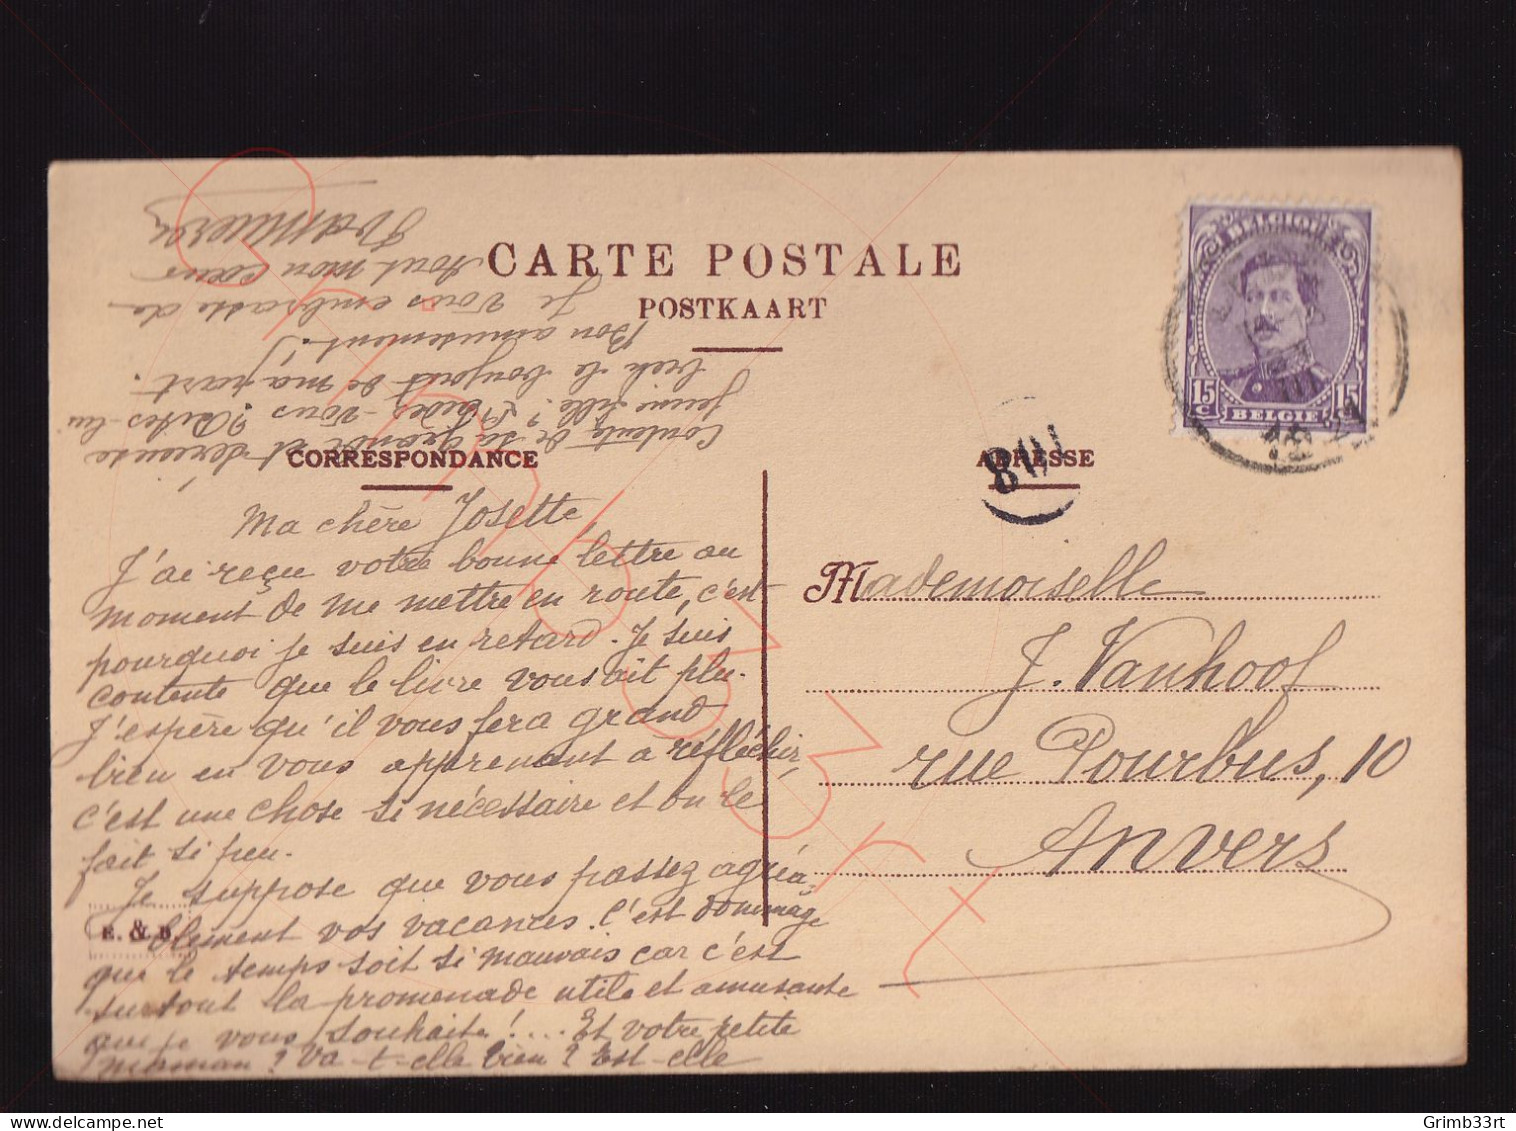 CARTE POSTALE
POSTKAART
CORRESPONDANCE
ADRESSE
BELGIQUE
15 c
15 c
BELGIE
Ma chère Josette,
J'ai reçu votre bonne lettre au
moment de me mettre en route, c'est
pourquoi je suis en retard. Je suis
contente que le livre vous ait plu.
J'espère qu'il vous fera grand
bien en vous apprenant a réfléchir,
c'est une chose si nécessaire et on le
fait si peu.
Je suppose que vous passez agréa-
blement vos vacances. C'est dommage
que le temps soit si mauvais car c'est
surtout la promenade utile et amusante
que je vous souhaite! ... Et votre petite
maman? Va-t-elle bien? Est-elle
contente de sa grande et sérieuse
jeune fille? L'aidez-vous? Dites-lui
bien le bonjour de ma part.
Bon amusement!)
Je vous embrasse de
tout mon cœur
E. & B.
Mademoiselle
J. Vanhoof
rue Pourbus, 10
Anvers
Grimb33rt
© delcampe.net Grimb33rt